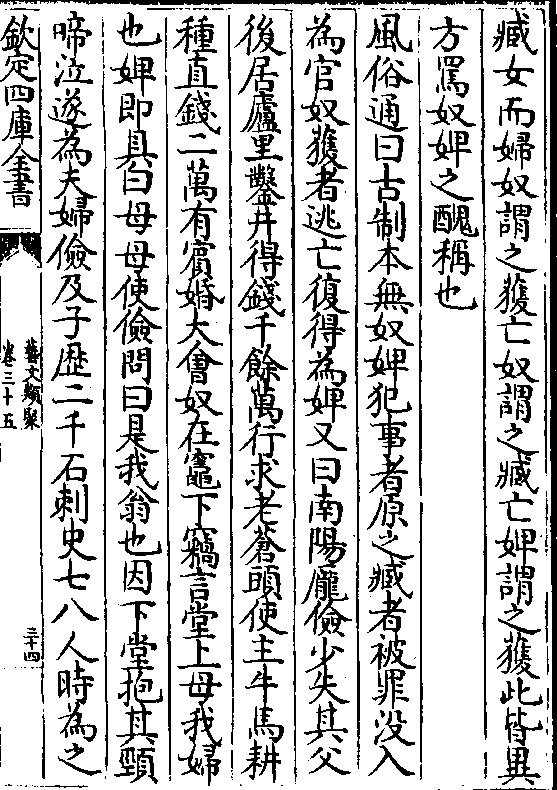 臧女而婦奴謂之獲亡奴謂之臧亡婢謂之獲此皆異
方罵奴婢之醜稱也
風俗通曰古制本無奴婢犯事者原之臧者被罪沒入
為官奴獲者逃亡復得為婢又曰南陽龐儉少失其父
後居廬里鑿井得錢千餘萬行求老蒼頭使主牛馬耕
種直錢二萬有賔婚大會奴在竈下竊言堂上母我婦
也婢即具白母母使儉問曰是我翁也因下堂抱其頸
啼泣遂為夫婦儉及子歴二千石刺史七八人時為之
欽定四庫全書
藝文類聚
卷三十五
三十四